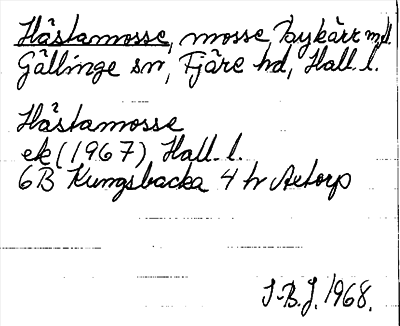 Hästamosse, mosse,
Gällinge sn, Fjäre hd, Hall. l.
Hästamosse
ek (1967) Hall. l.
6B Kungsbacka 4 h Aetorp
J.-B.J. 1968.